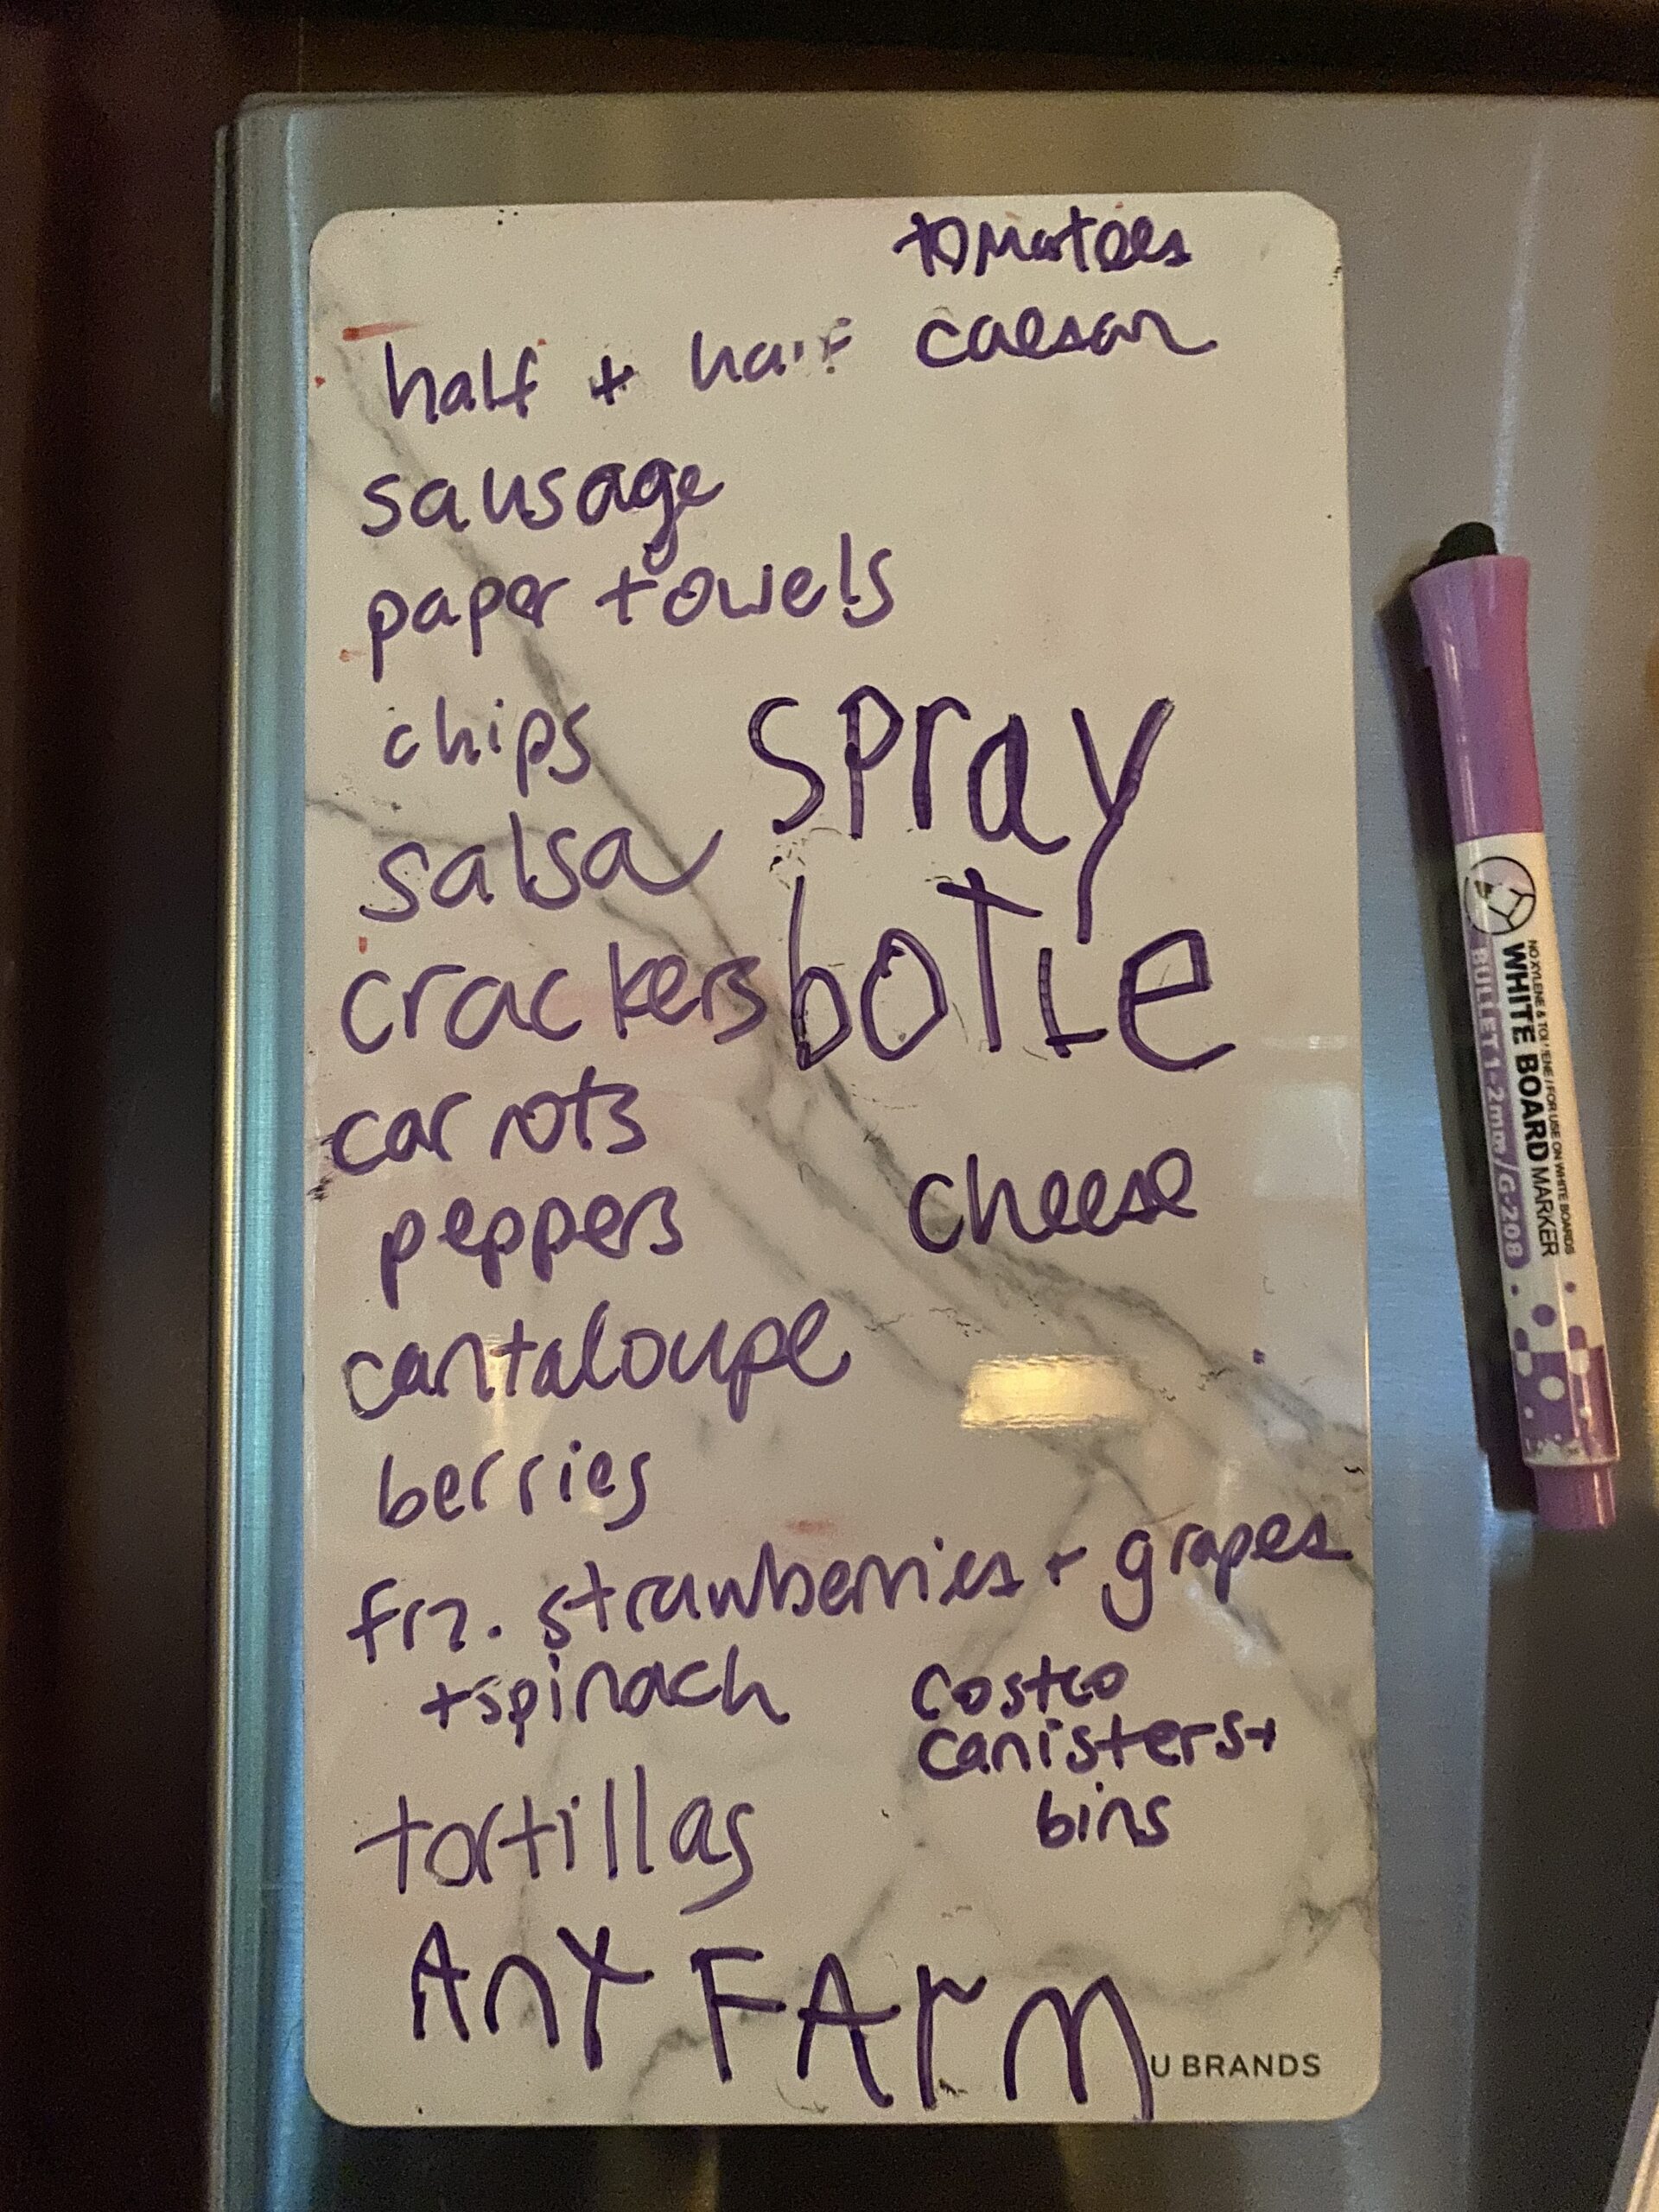 tomatoes
half + half caesar
sausage
paper towels
chips
spray
salsa
botle
crackers
carrots
cheese
peppers
cantaloupe
berries
frz. strawberries + grapes
+spinach
costco
canisters+
bins
tortillas
Any FArm
U BRANDS
NO XYLENE & TOLUENE / FOR USE ON WHITE BOARDS
WHITE BOARD MARKER
BULLET 1-2mm/G-208